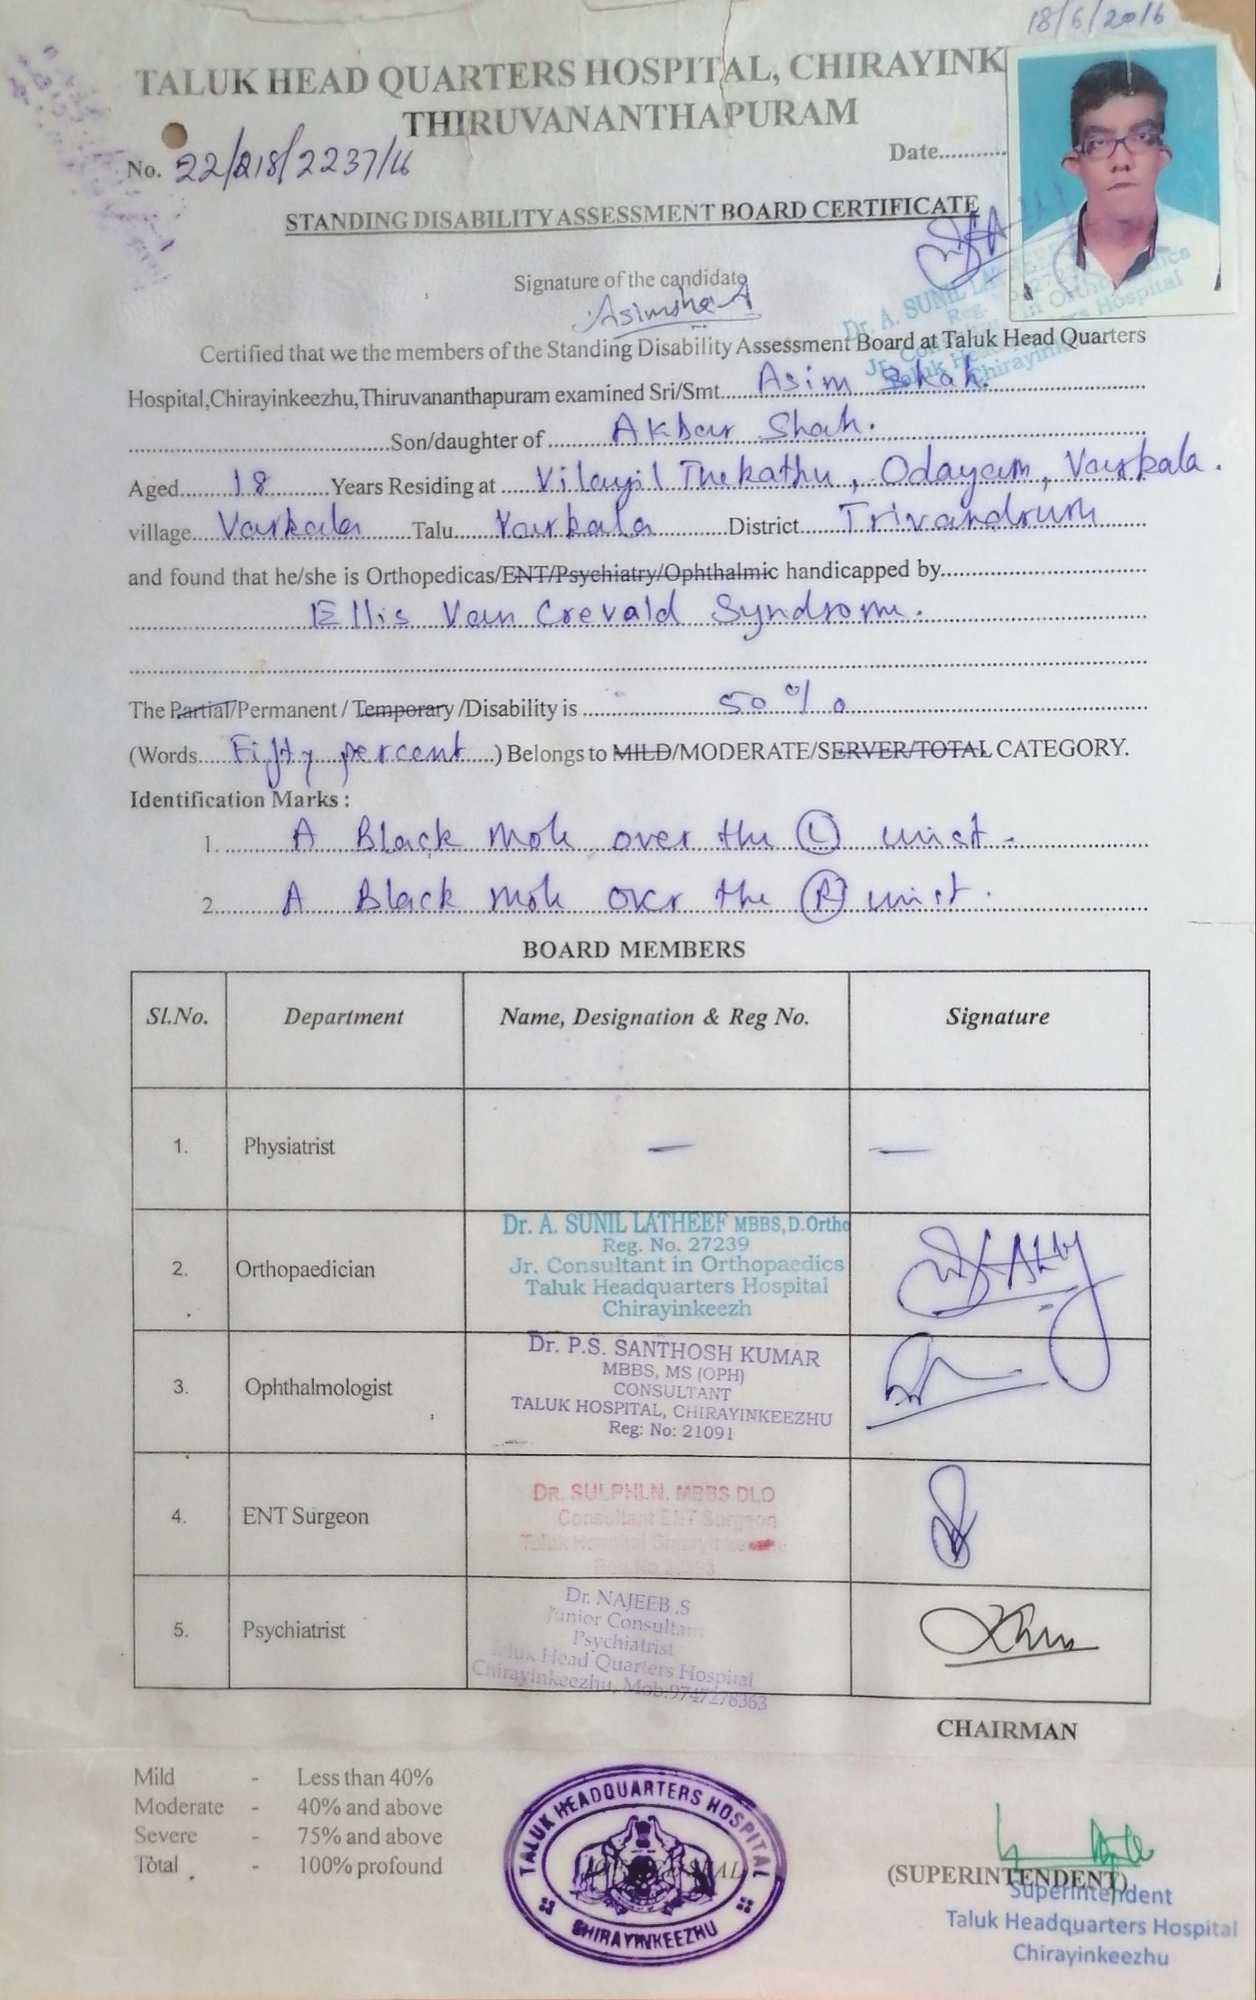 18/6/2016
TALUK HEAD QUARTERS HOSPITAL, CHIRAYINK
THIRUVANANTHAPURAM
No. 22/218/2237/16
Date...........
STANDING DISABILITY ASSESSMENT BOARD CERTIFICATE
Signature of the candidate
Asimsha A
Dr. A. SUNIL LA
Reg.
in Orthopaedics
Hospital
Chirayin
Certified that we the members of the Standing Disability Assessment Board at Taluk Head Quarters
Hospital,Chirayinkeezhu,Thiruvananthapuram examined Sri/Smt. Asim Shah.
Son/daughter of Akbar Shah.
Aged 18 Years Residing at Vilayil Thekathu, Odayam, Varkala.
village Varkala Talu Varkala District Trivandrum
and found that he/she is Orthopedicas/ENT/Psychiatry/Ophthalmic handicapped by
Ellis Van Crevald Syndrome.
The Partial/Permanent / Temporary /Disability is 50%
(Words Fifty percent ) Belongs to MILD/MODERATE/SERVER/TOTAL CATEGORY.
Identification Marks :
1. A Black mole over the (L) wrist -
2. A Black mole over the (R) wrist.
BOARD MEMBERS
Sl.No. Department Name, Designation & Reg No. Signature
1. Physiatrist — —
2. Orthopaedician
Dr. A. SUNIL LATHEEF MBBS, D.Ortho
Reg. No. 27239
Jr. Consultant in Orthopaedics
Taluk Headquarters Hospital
Chirayinkeezh
3. Ophthalmologist
Dr. P.S. SANTHOSH KUMAR
MBBS, MS (OPH)
CONSULTANT
TALUK HOSPITAL, CHIRAYINKEEZHU
Reg: No: 21091
4. ENT Surgeon
DR. SULPHI.N. MBBS DLO
Consultant ENT Surgeon
Taluk Hospital
5. Psychiatrist
Dr. NAJEEB .S
Junior Consultant
Psychiatrist
Taluk Head Quarters Hospital
Chirayinkeezhu, Mob:9747278363
CHAIRMAN
Mild - Less than 40%
Moderate - 40% and above
Severe - 75% and above
Total - 100% profound
TALUK HEADQUARTERS HOSPITAL
CHIRAYINKEEZHU
(SUPERINTENDENT)
Superintendent
Taluk Headquarters Hospital
Chirayinkeezhu